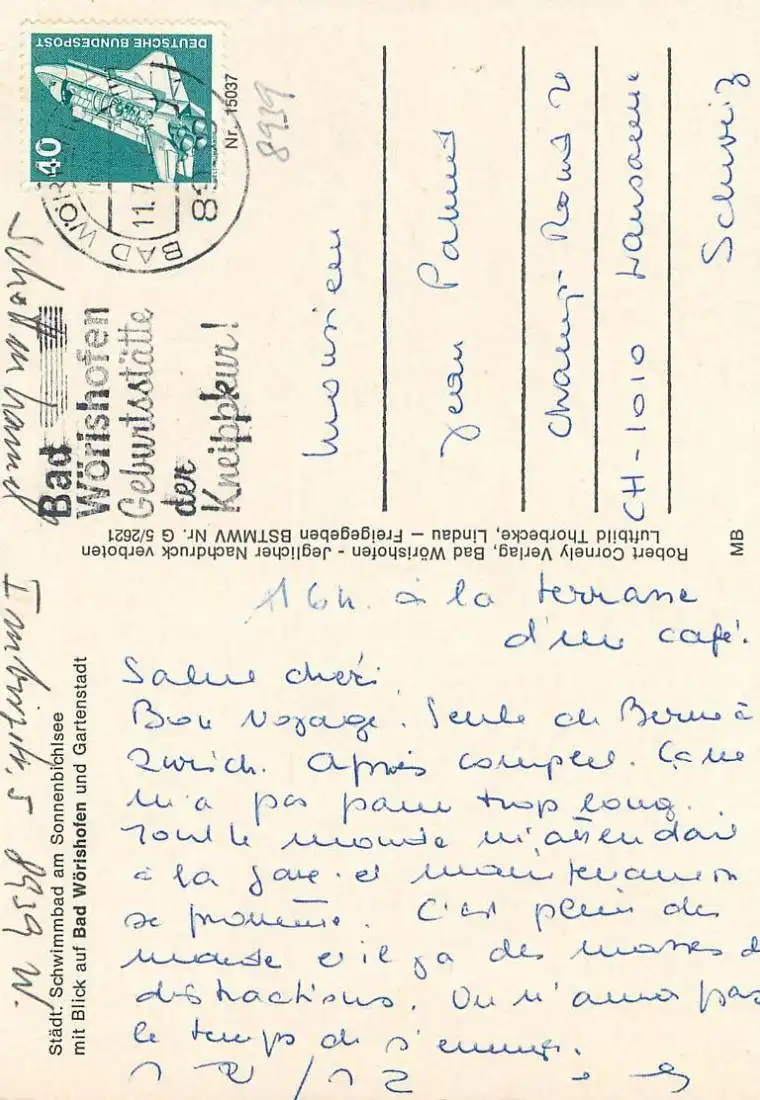 DEUTSCHE BUNDESPOST
40
Nr. 15037
8939
BAD WÖRI
11.7
89
Bad
Wörishofen
Geburtsstätte
der
Kneippkur!
Monsieur
Jean
Champ Rond 2
CH-1010 Lausanne
Schweiz
Robert Cornely Verlag, Bad Wörishofen - Jeglicher Nachdruck verboten
Luftbild Thorbecke, Lindau – Freigegeben BSTMWV Nr. G 5/2621
MB
Städt. Schwimmbad am Sonnenbichlsee
mit Blick auf Bad Wörishofen und Gartenstadt
5 8939 W.
16h. à la terrasse
d'un café.
Salue chéri,
Bon voyage. Seule de Berne à
Zurich. Après complet. Ça ne
m'a pas paru trop long.
Tout le monde m'attendait
à la gare et maintenant on
se promène. C'est plein de
monde et il y a des masses de
distractions. On n'aura pas
le temps de s'ennuyer.